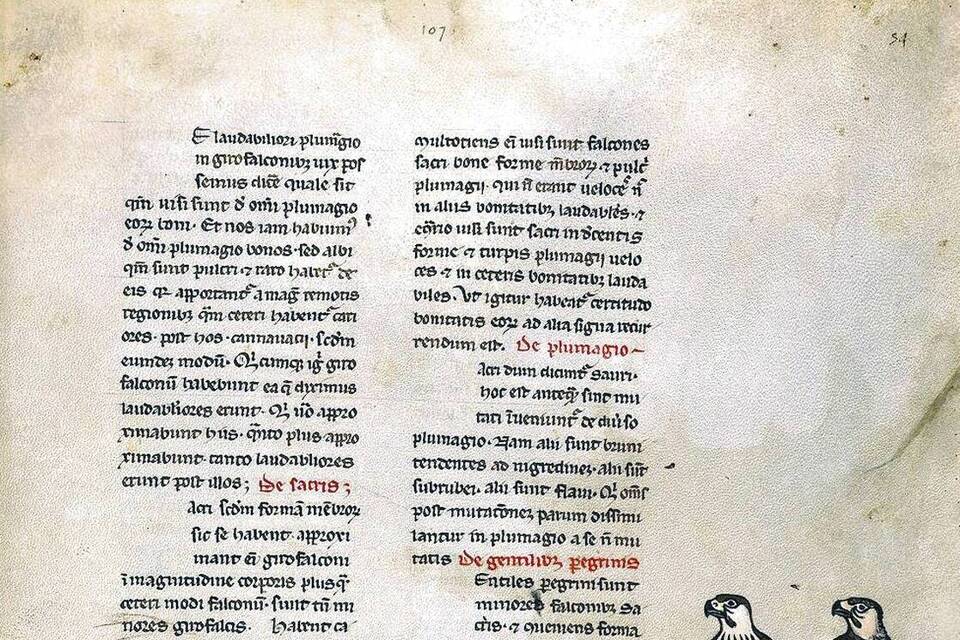 107
54
E laudabiliori plumagio
in girofalconibꝫ uix pos
semus dicē quale sit
qm̄ uisi sunt d̄ om̄i plumagio
eoꝝ boni. Et nos iam habuimꝰ
d̄ om̄i plumagio bonos. sed albi
qm̄ sunt pulcri ⁊ raro habent᷑ de
eis qꝛ apportant᷑ a mag̃ remotis
regionibꝫ qm̄ ceteri habent᷑ cari
ores. post hos. cannauacii. scd̄m
eundeꝫ modū. Qͥcunqꝫ igͥ giro
falconū habebunt ea q̄ diximus
laudabliores erunt. Qͥ ūo appro
ximabunt hiis. qͣnto plus appro
ximabunt. tanto laudabliores
erunt post illos; De sacris;
Acri scd̄m formam mēbroꝝ
sic se habent. approxi
mant eī girofalconi
ī magnitudine corporis plusqͣ
ceteri modi falconū. sunt tn̄ mi
nores girofalcis. Habent ca
multotiens eī uisi sunt falcones
sacri bone forme m̄broꝝ ⁊ pulcͥ
plumagii. qui n̄ erant ueloceˢ n̄
in aliis bonitatibꝫ laudabileˢ. ⁊
eͦtͣrio uisi sunt sacri indecentis
forme ⁊ turpis plumagii uelo
ces ⁊ in ceteris bonitatibꝫ lauda
biles. Vt igitur habeat᷑ certitudo
bonitatis eoꝝ ad alia signa recur
rendum est. De plumagio
Acri dum dicunt᷑ sauri.
hoc est anteqͣ sint mu
tati īueniunt᷑ de diūso
plumagio. Nam alii sunt bruni
tendentes ad nigredineꝫ. alii sūt
subrubei. alii sunt flaui. Qͥ om̄s
post mutatōneꝫ parum dissimi
lantur in plumagio a se n̄ mu
tatis De gentilibꝫ peregrinis
Entiles peregrini sunt
minores falconibꝫ sa
cris. ⁊ conueniens forma